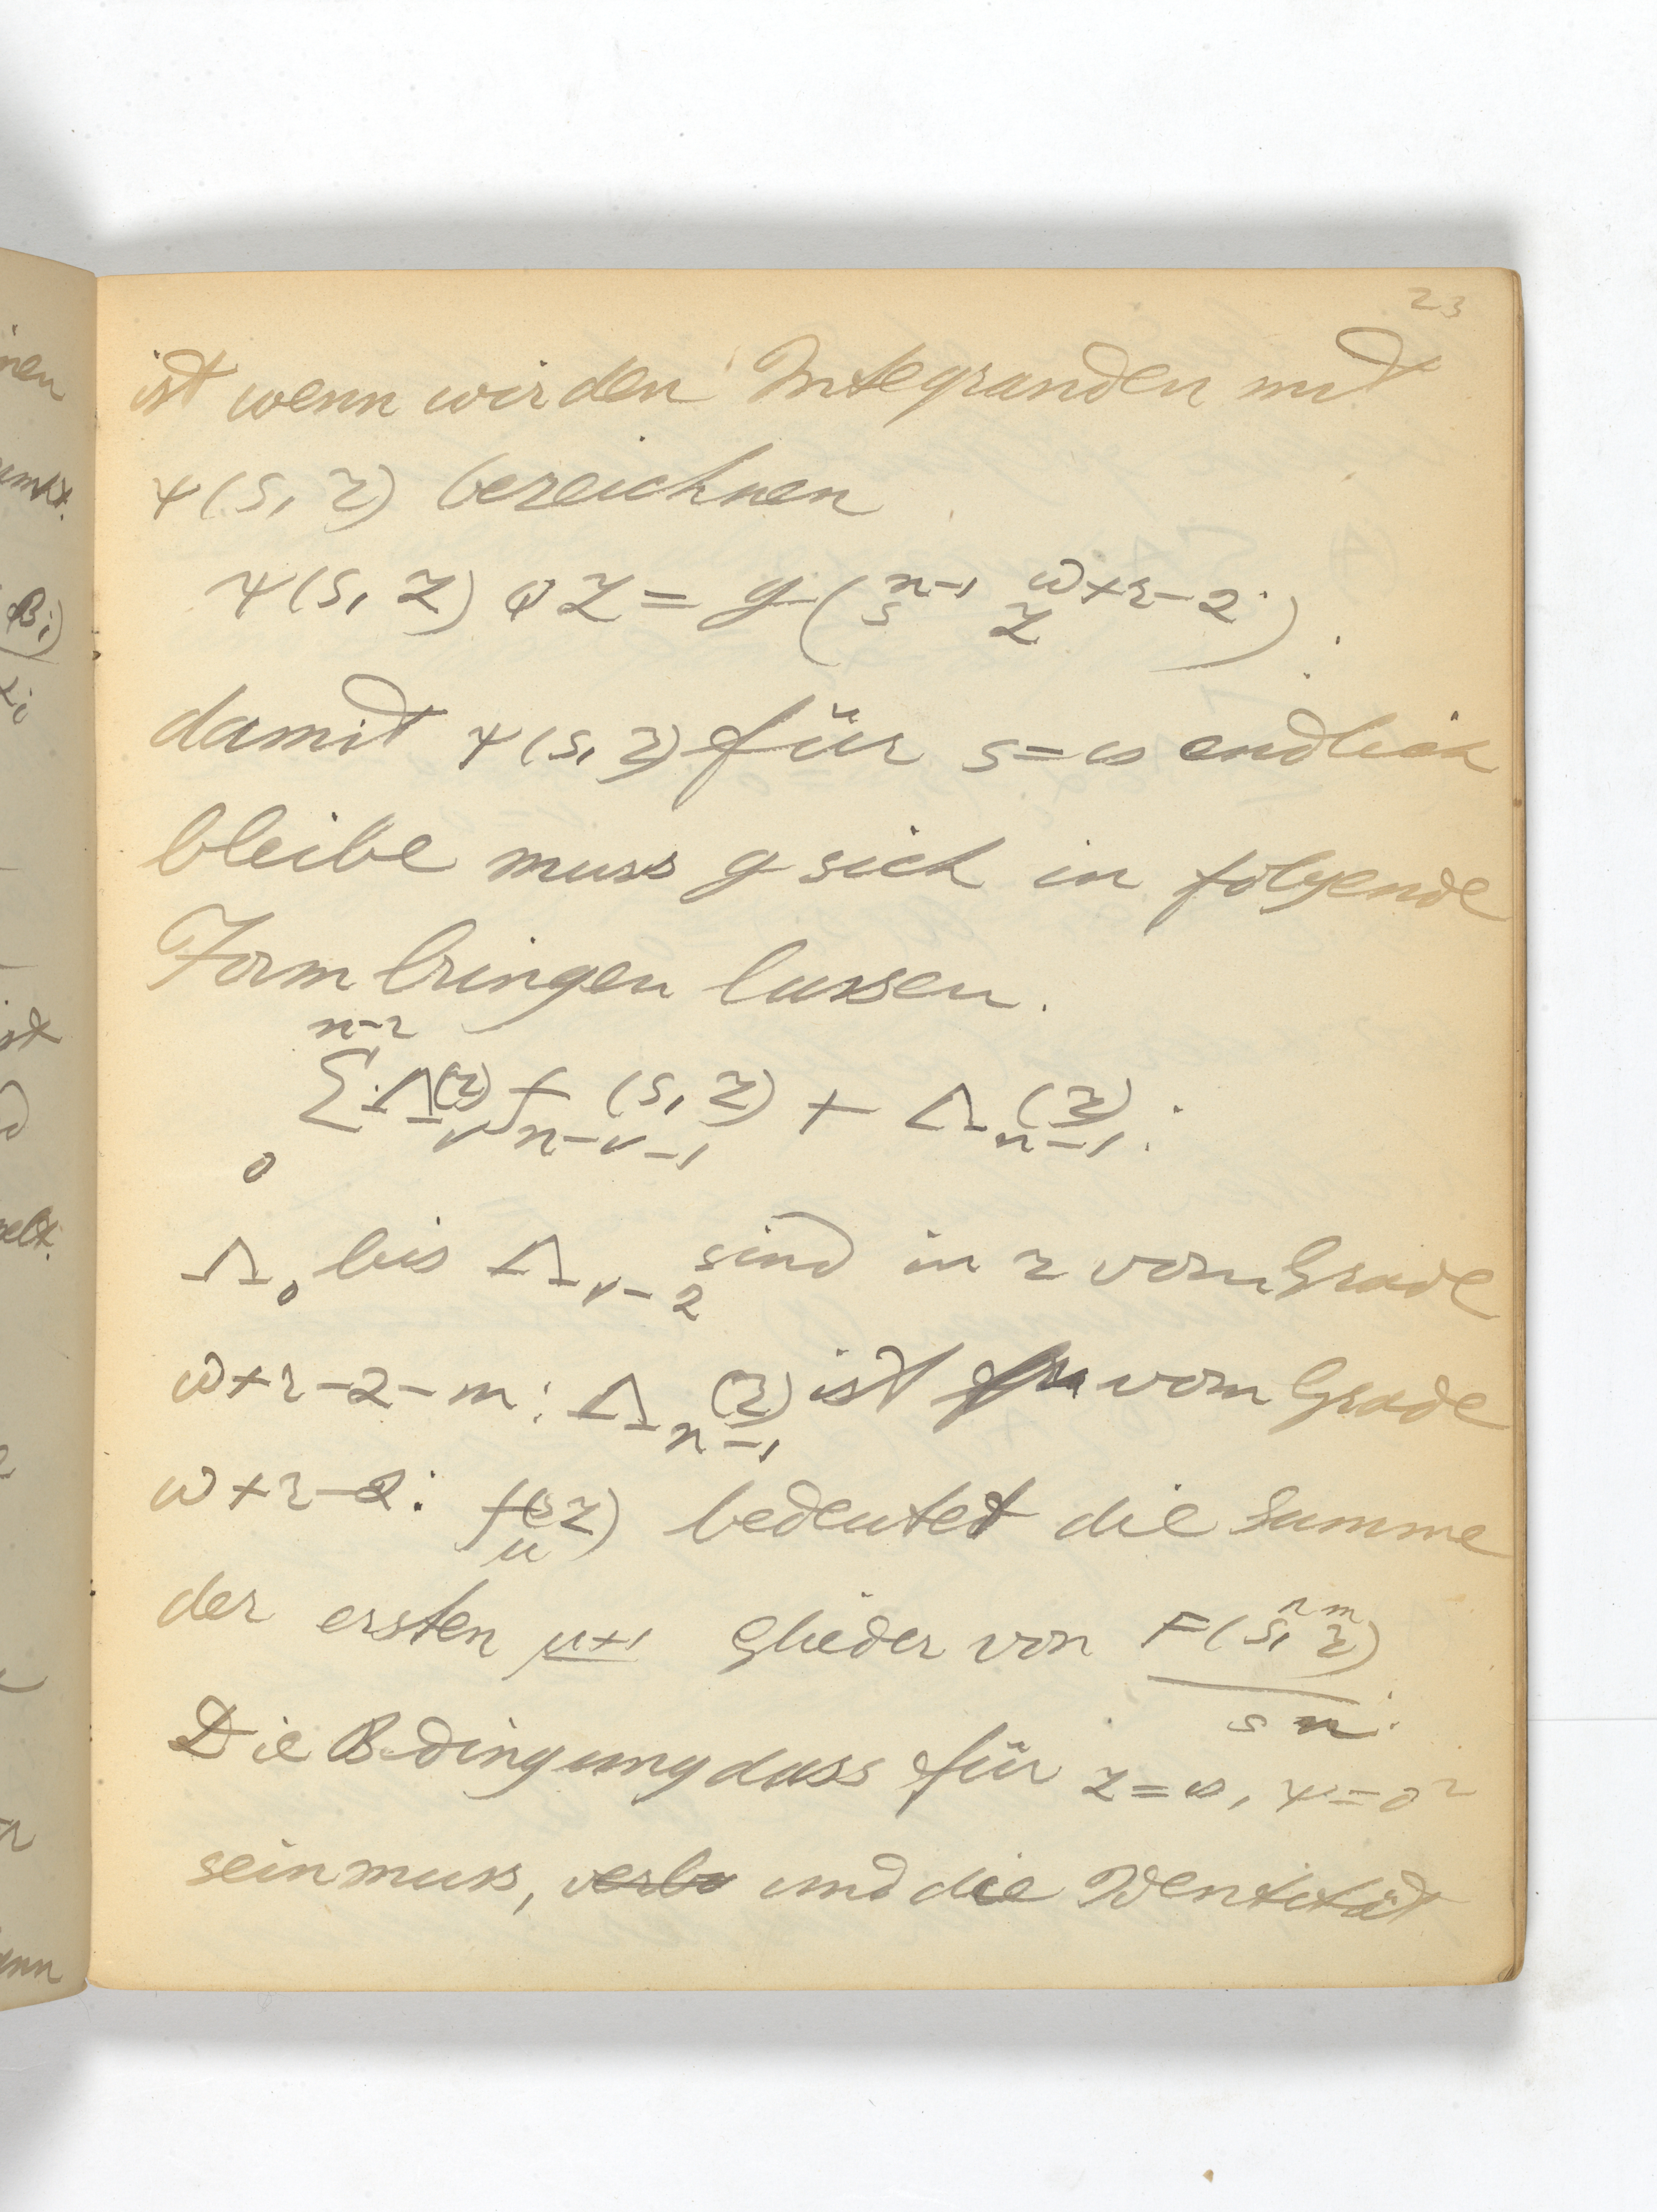 23
ist wenn wir den Integranden mit
ψ(s, z) bezeichnen
ψ(s, z) φz = g(s^{n-1} z^{w+r-2}).
damit ψ(s, z) für s=∞ endlich
bleibe muss g sich in folgende
Form bringen lassen.
n-2
∑ Λ_ν(z) f_{n-ν-1}(s, z) + Λ_{n-1}(z).
0
Λ_0 bis Λ_{ν-2} sind in z vom Grade
w+r-2-m: Λ_{n-1}(z) ist vom Grade
w+r-2: f_μ(s z) bedeutet die Summe
der ersten μ+1 Glieder von F(s^n, z^m)
s^n.
Die Bedingung dass für z=∞, ψ=0²
sein muss, und die Identität